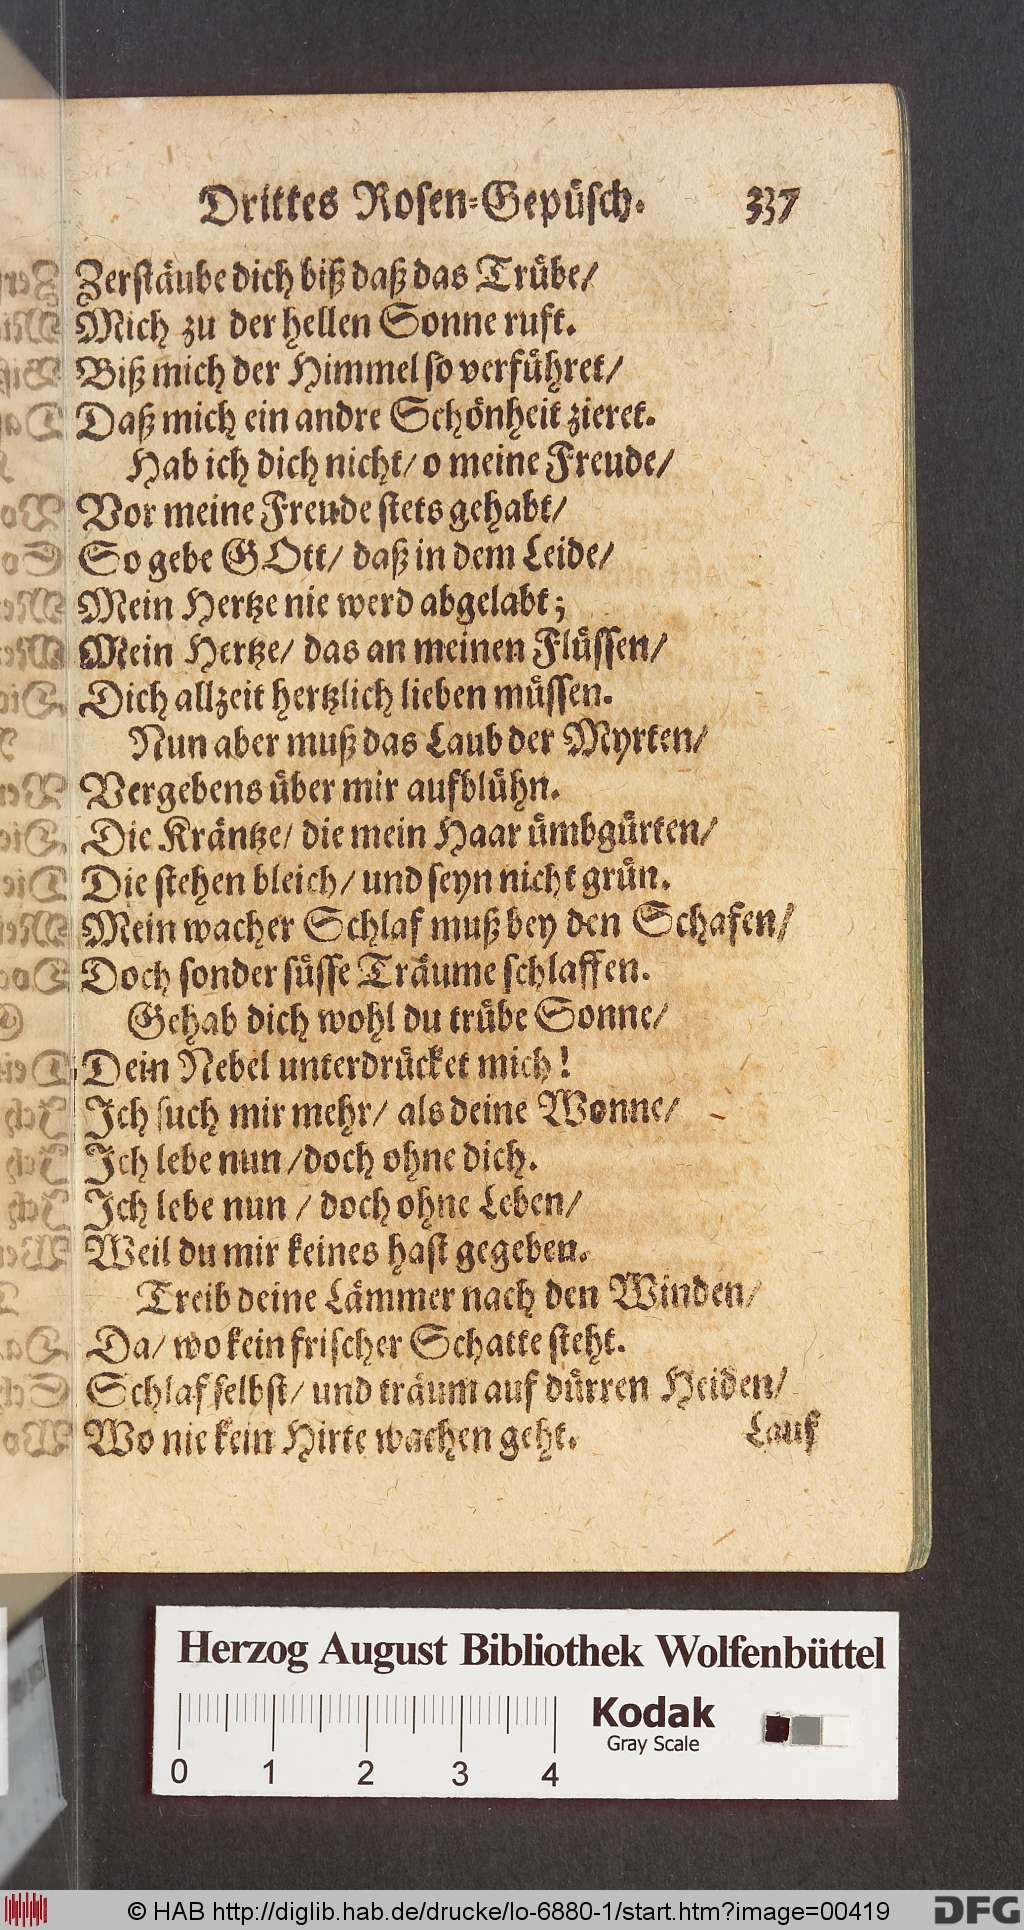 Drittes Rosen-Gepüsch. 337
Zerstäube dich biß daß das Trübe/
Mich zu der hellen Sonne ruft.
Biß mich der Himmel so verführet/
Daß mich ein andre Schönheit zieret.
Hab ich dich nicht/ o meine Freude/
Vor meine Freude stets gehabt/
So gebe GOtt/ daß in dem Leide/
Mein Hertze nie werd abgelabt;
Mein Hertze/ das an meinen Flüssen/
Dich allzeit hertzlich lieben müssen.
Nun aber muß das Laub der Myrten/
Vergebens über mir aufblühn.
Die Kräntze/ die mein Haar ümbgürten/
Die stehen bleich/ und seyn nicht grün.
Mein wacher Schlaf muß bey den Schafen/
Doch sonder süsse Träume schlaffen.
Gehab dich wohl du trübe Sonne/
Dein Nebel unterdrücket mich!
Ich such mir mehr/ als deine Wonne/
Ich lebe nun /doch ohne dich.
Ich lebe nun / doch ohne Leben/
Weil du mir keines hast gegeben.
Treib deine Lämmer nach den Winden/
Da/ wo kein frischer Schatte steht.
Schlaf selbst/ und träum auf dürren Heiden/
Wo nie kein Hirte wachen geht.
Lauf
Herzog August Bibliothek Wolfenbüttel
Kodak
Gray Scale
0 1 2 3 4
© HAB http://diglib.hab.de/drucke/lo-6880-1/start.htm?image=00419
DFG